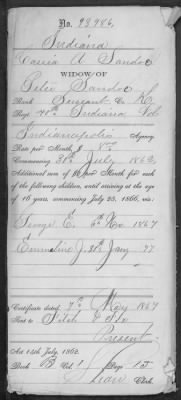 No. 98986,
Indiana
A Sando
WIDOW OF
Peter Sando
Rank Sergeant Co. K.
Regt 41st Indiana Vols
Indianapolis Agency
Rate per Month, $ 8
Commencing 31st July 1862
Additional sum of $ per Month for each
of the following children, until arriving at the age
of 16 years, commencing July 25, 1866, viz:
George E. 6th Nov 1867
Emmeline J. 31st Jany 77
Certificate dated 7th May 1869
Sent to
Present
Act 14th July, 1862.
Book B Vol. 1 Page
Clerk.